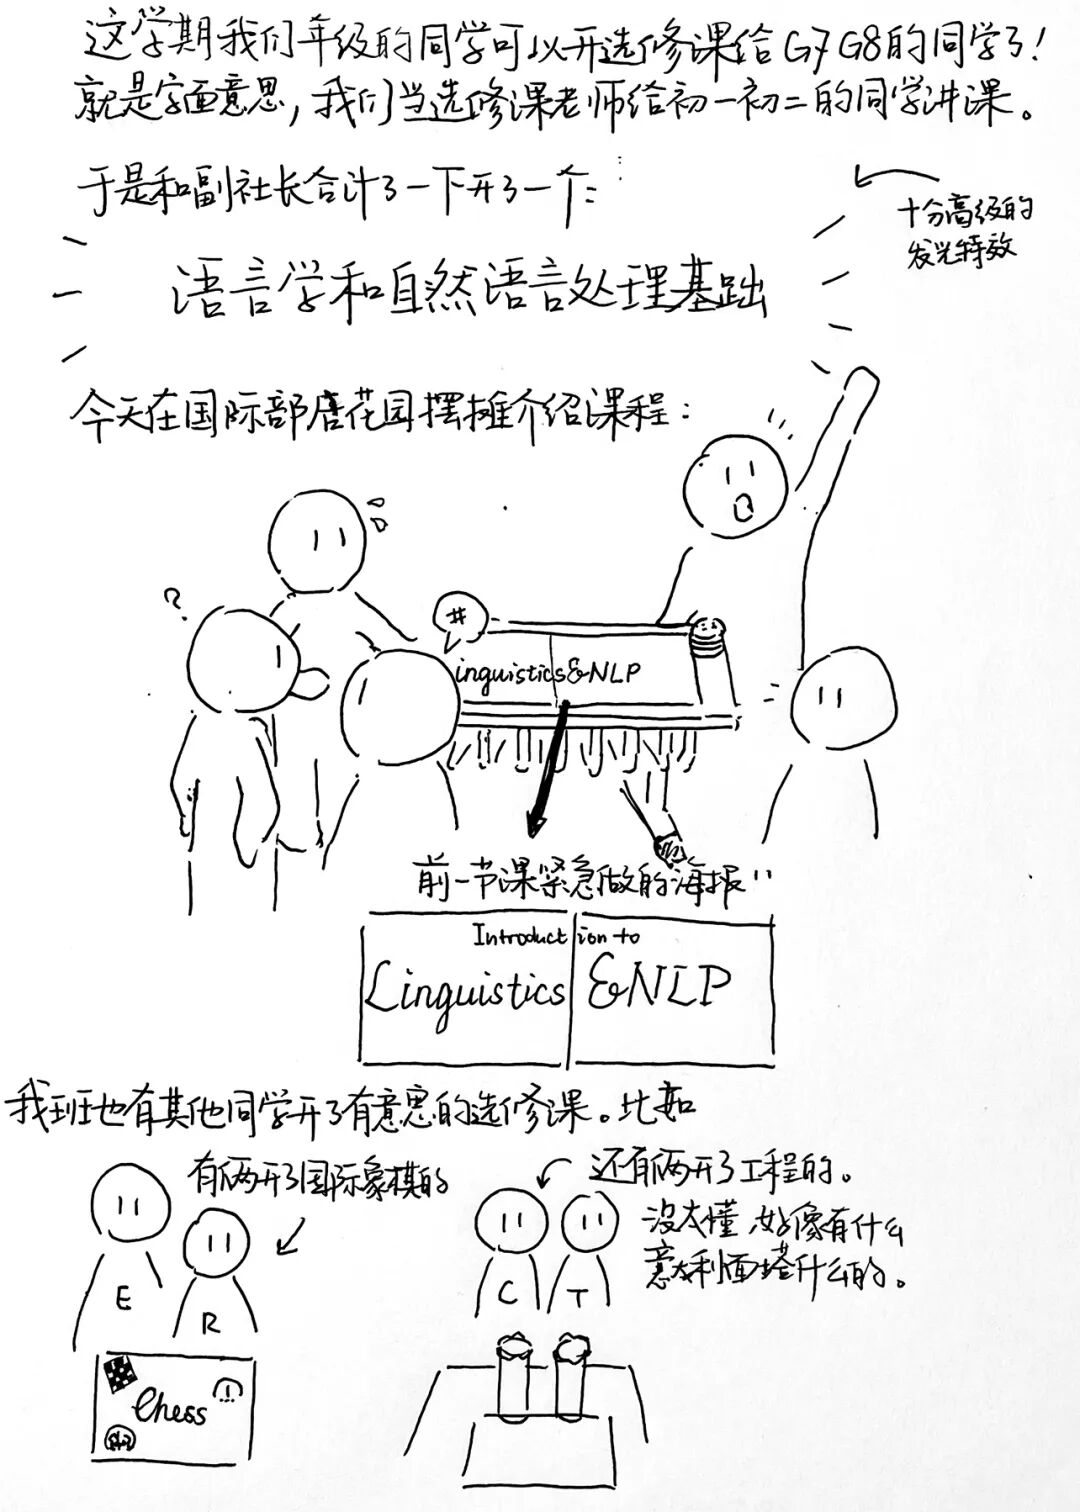 这学期我们年级的同学可以开选修课给G7 G8的同学了！
就是字面意思，我们当选修课老师给初一初二的同学讲课。
于是和副社长合计了一下开了一个：
十分高级的
发光特效
语言学和自然语言处理基础
今天在国际部唐花园摆摊介绍课程：
?
#
inguistics&NLP
前一节课紧急做的海报
Introduction to
Linguistics &NLP
我班也有其他同学开了有意思的选修课。比如
有俩开了国际象棋的
还有俩开了工程的。
没太懂，好像有什么
意大利面塔什么的。
E
R
C
T
Chess